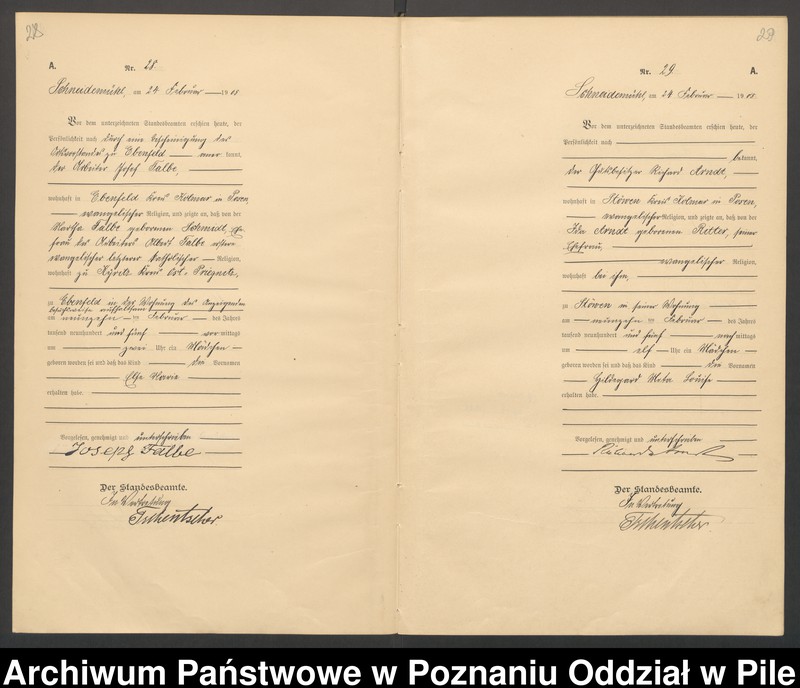 28
A.
Nr. 28
Schneidemühl, am 24 Februar 19
Vor dem unterzeichneten Standesbeamten erschien heute, der
Persönlichkeit nach durch eine Bescheinigung des
Ortsvorstandes zu Ebenfeld anerkannt,
der Arbeiter Josef Falbe,
wohnhaft in Ebenfeld Kreis Kolmar in Posen,
evangelischer Religion, und zeigte an, daß von der
Martha Falbe geborenen Schmidt, Ehe
frau des Arbeiters Albert Falbe erstere
evangelischer letzterer katholischer Religion,
wohnhaft zu Kreis Ost-Priegnitz,
zu Ebenfeld in der Wohnung des Anzeigenden
besuchsweise aufhaltsam
am neunzehn ten Februar des Jahres
tausend neunhundert und fünf vormittags
um zwei Uhr ein Mädchen
geboren worden sei und daß das Kind die Vornamen
Else Marie
erhalten habe.
Vorgelesen, genehmigt und unterschrieben
Joseph Falbe
Der Standesbeamte.
In Vertretung
Tschentscher
29
Nr. 29
A.
Schneidemühl, am 24 Februar 19
Vor dem unterzeichneten Standesbeamten erschien heute, der
Persönlichkeit nach
bekannt,
der Gutsbesitzer Richard Arndt,
wohnhaft in Stöwen Kreis Kolmar in Posen,
evangelischer Religion, und zeigte an, daß von der
Ida Arndt geborenen Retter, seiner
Ehefrau,
evangelischer Religion,
wohnhaft bei ihm,
zu Stöwen in seiner Wohnung
am neunzehn ten Februar des Jahres
tausend neunhundert und fünf nachmittags
um elf Uhr ein Mädchen
geboren worden sei und daß das Kind die Vornamen
Hildegard Meta Louise
erhalten habe.
Vorgelesen, genehmigt und unterschrieben
Richard Arndt
Der Standesbeamte.
In Vertretung
Tschentscher
Archiwum Państwowe w Poznaniu Oddział w Pile